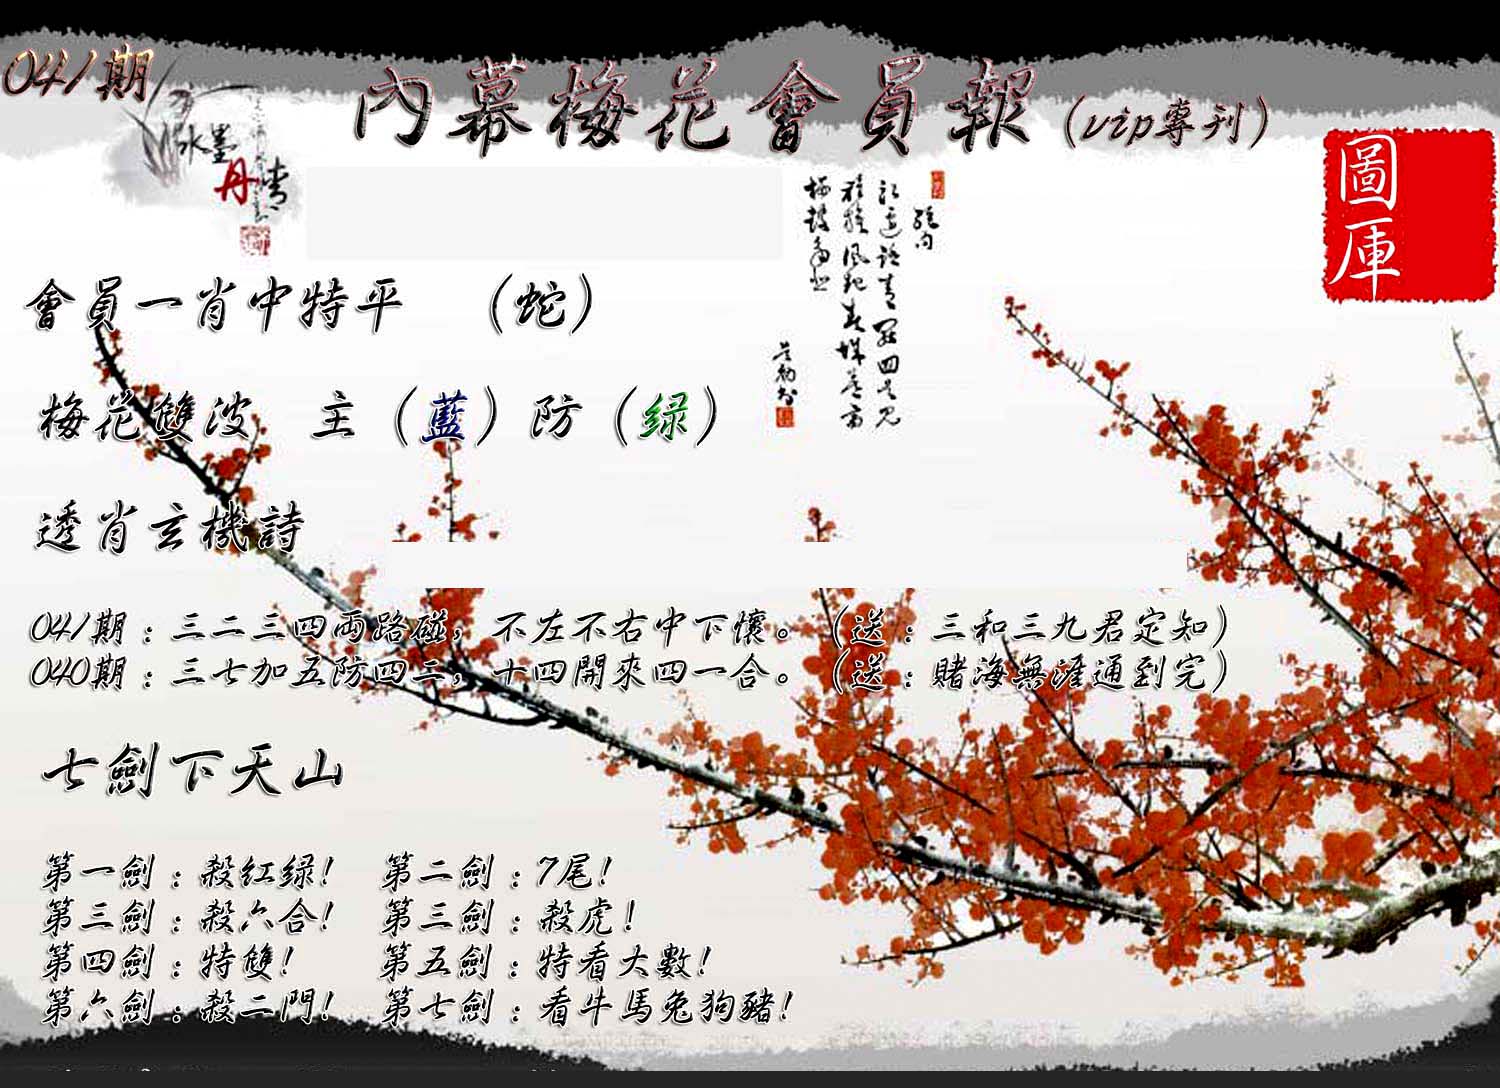 041期
內幕梅花會員報(vip專刊)
水墨
丹青
圖庫
會員一肖中特平 (蛇)
梅花雙波 主(藍)防(绿)
透肖玄機詩
041期：三二三四兩路碰，不左不右中下懷。(送：三和三九君定知)
040期：三七加五防四二，十四開來四一合。(送：賭海無涯通到完)
七劍下天山
第一劍：殺红绿! 第二劍：7尾!
第三劍：殺六合! 第三劍：殺虎!
第四劍：特雙! 第五劍：特看大數!
第六劍：殺二門! 第七劍：看牛馬兔狗豬!